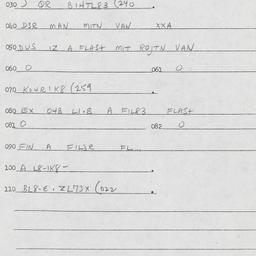 030 QR 81HTL83 (240
040 D3R MAN MITN VAN XXA
050 DUS IZ A FLASH MIT ROJTN VAN
060 0 061 0
070 KOUR1K8 (259
080 EX 04B L1.B A FIL83 FLASH
081 0 082 0
090 FIN A FIL3R FL...
100 A L8-1K8-
110 BL8-E. ZL73X (022